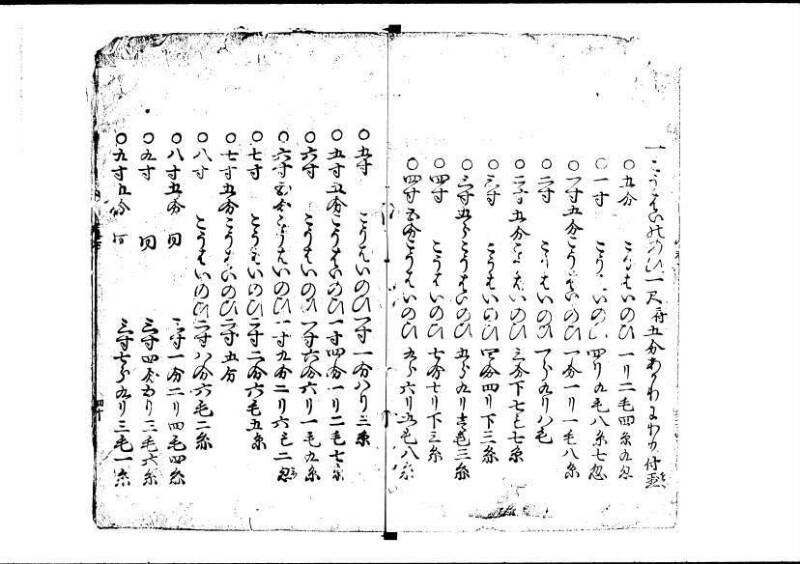 一こうはいのひ一尺ニ付五分あかり
〇五分 こうはいのひ 一リ二毛四糸九忽
〇一寸 こうはいのひ 四リ九毛八糸七忽
〇一寸五分こうはいのひ 一分一リ一毛八糸
〇二寸 こうはいのひ 一分九リ八毛
〇二寸五分こうはいのひ 三分下七毛七糸
〇三寸 こうはいのひ 四分四リ下三糸
〇三寸五分こうはいのひ 五分九リ 三糸
〇四寸 こうはいのひ 七分七リ下三糸
〇四寸五分こうはいのひ 九分六リ五毛八糸
〇五寸 こうはいのひ一寸一分八リ三糸
〇五寸五分こうはいのひ一寸四分一リ二毛七糸
〇六寸 こうはいのひ一寸六分六リ一毛九糸
〇六寸五分こうはいのひ一寸九分二リ六毛二忽
〇七寸 こうはいのひ二寸二分六毛五糸
〇七寸五分こうはいのひ二寸五分
〇八寸 こうはいのひ二寸八分六毛二糸
〇八寸五分 同 三寸一分二リ四毛四糸
〇九寸 同 三寸四分五リ二毛六糸
〇九寸五分 同 三寸七分九リ三毛一糸